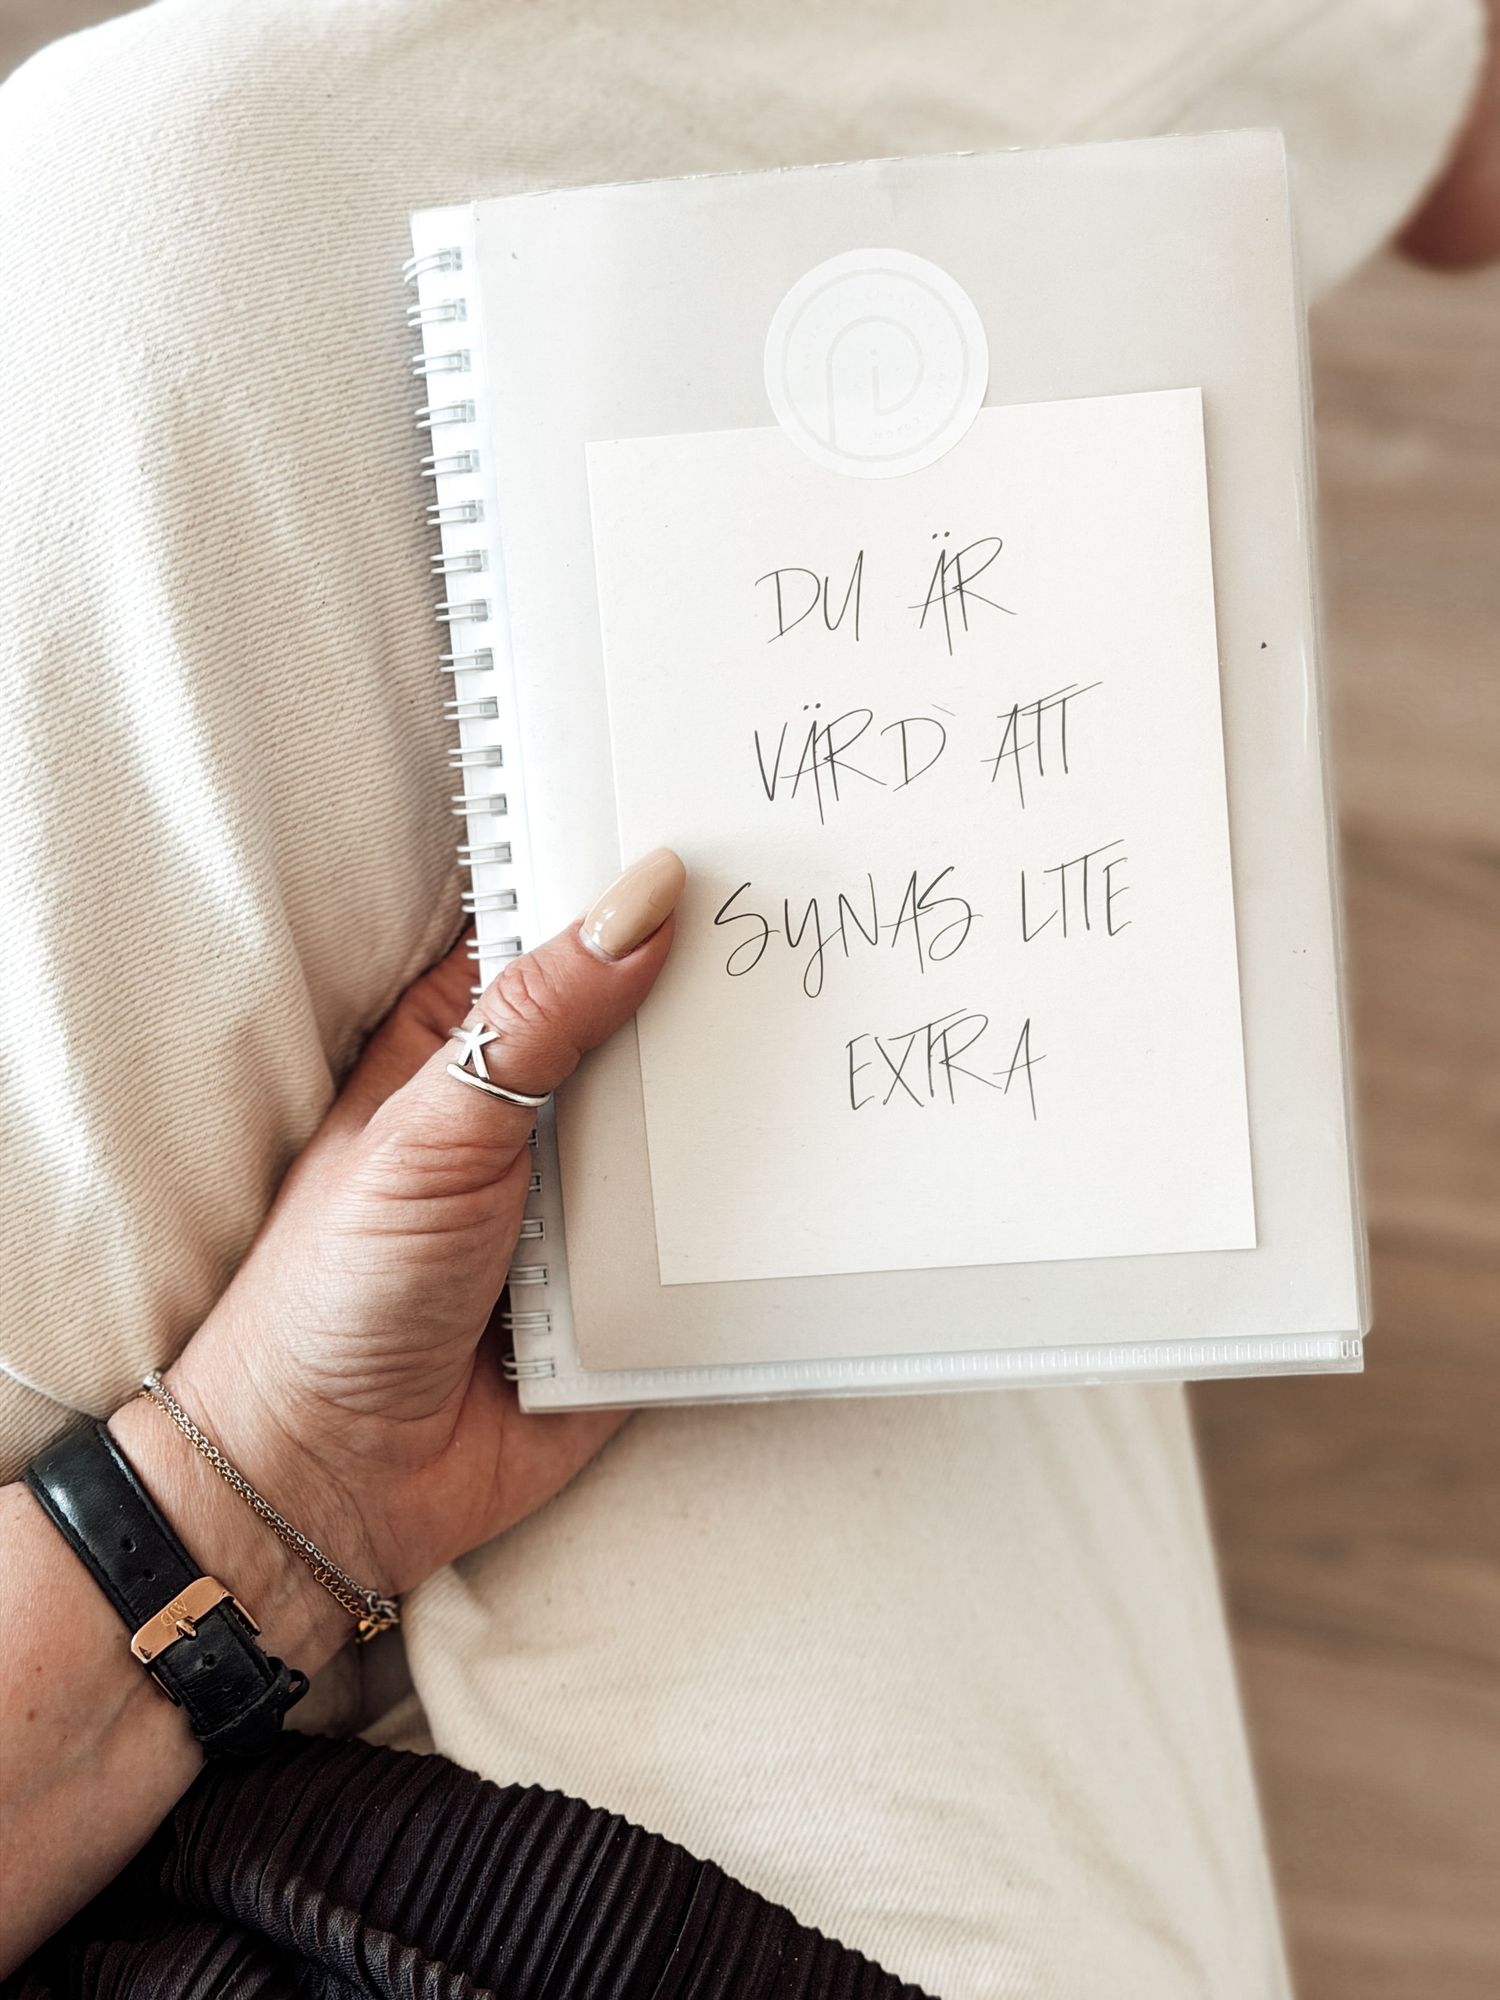 DU ÄR
VÄRD ATT
SYNAS LITE
EXTRA
DW